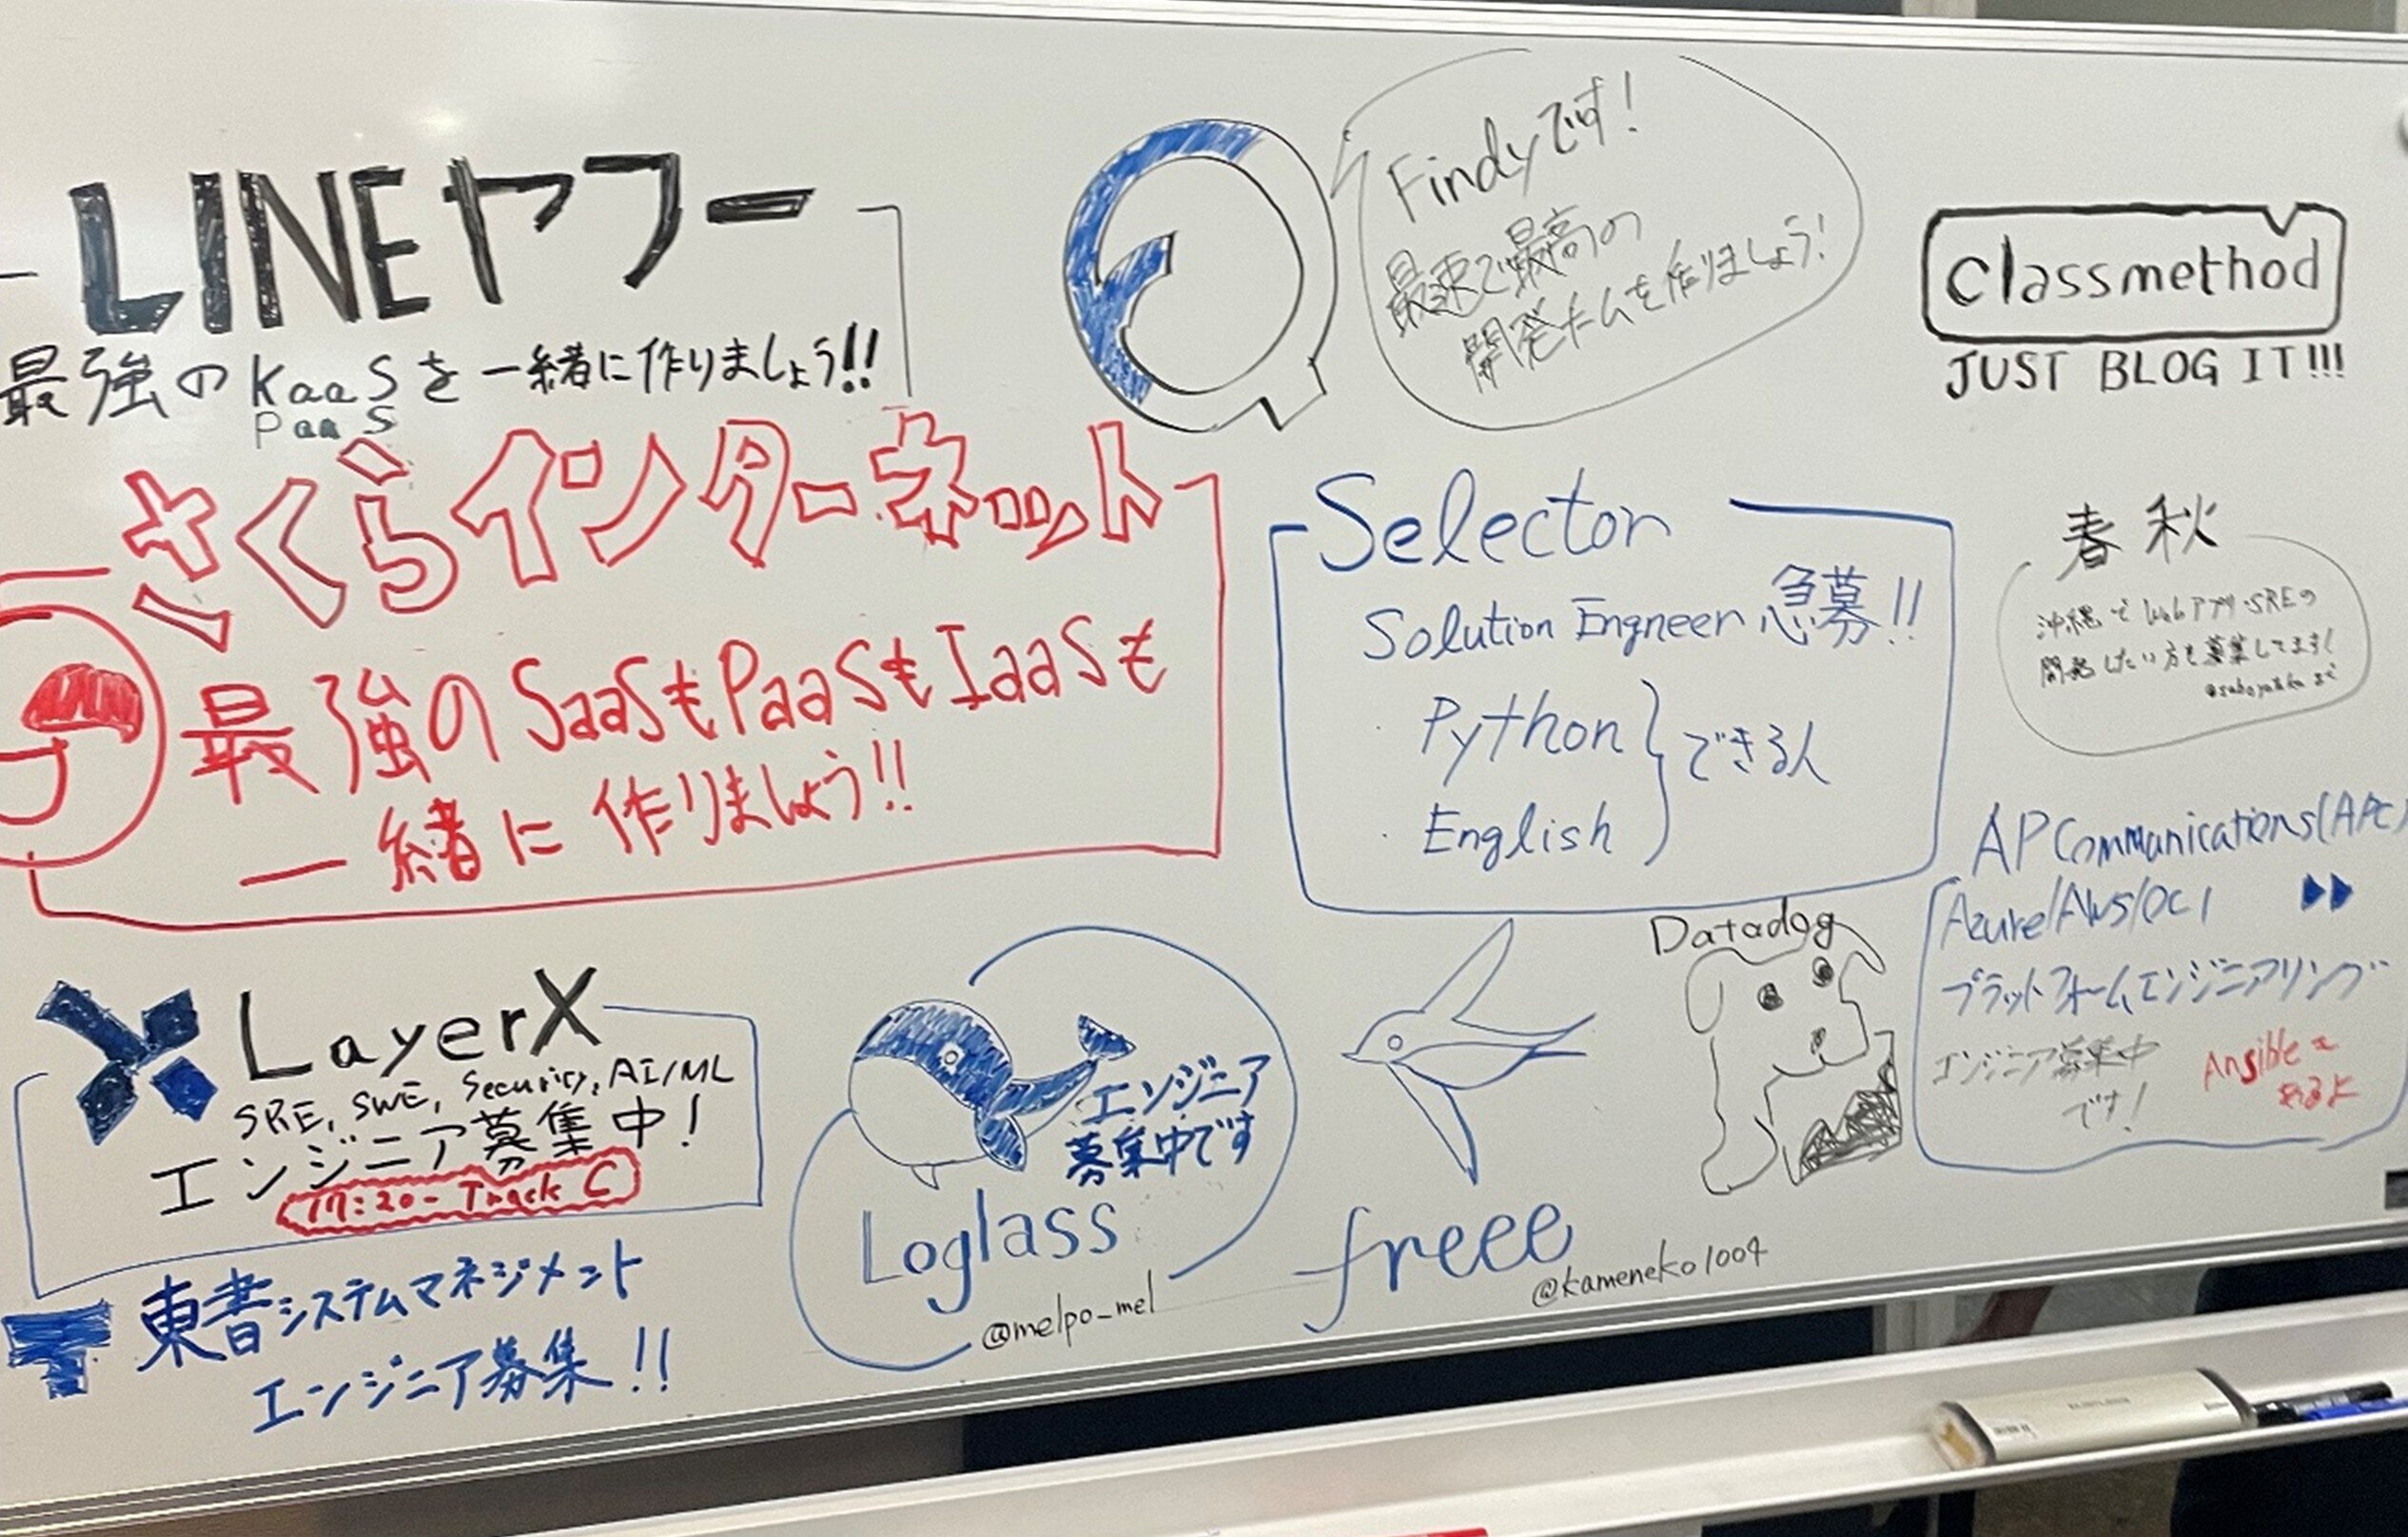 LINEヤフー
最強のKaaSを一緒に作りましょう!!
PaaS
Findyです!
最速で最高の
開発チームを作りましょう!
classmethod
JUST BLOG IT!!!
さくらインターネット
最強のSaaSもPaaSもIaaSも
一緒に作りましょう!!
Selector
Solution Engneer 急募!!
・Python
・English
できる人
春秋
沖縄でWebアプリ・SREの
開発したい方を募集してます!
まで
AP Communications(APC)
Azure/AWS/OCI
プラットフォームエンジニアリング
エンジニア募集中
です!
Ansibleも
あるよ
LayerX
SRE, SWE, Security, AI/ML
エンジニア募集中!
17:20- Track C
エンジニア
募集中です
Loglass
@melpo_mel
freee
@kameneko1004
Datadog
東音システムマネジメント
エンジニア募集!!